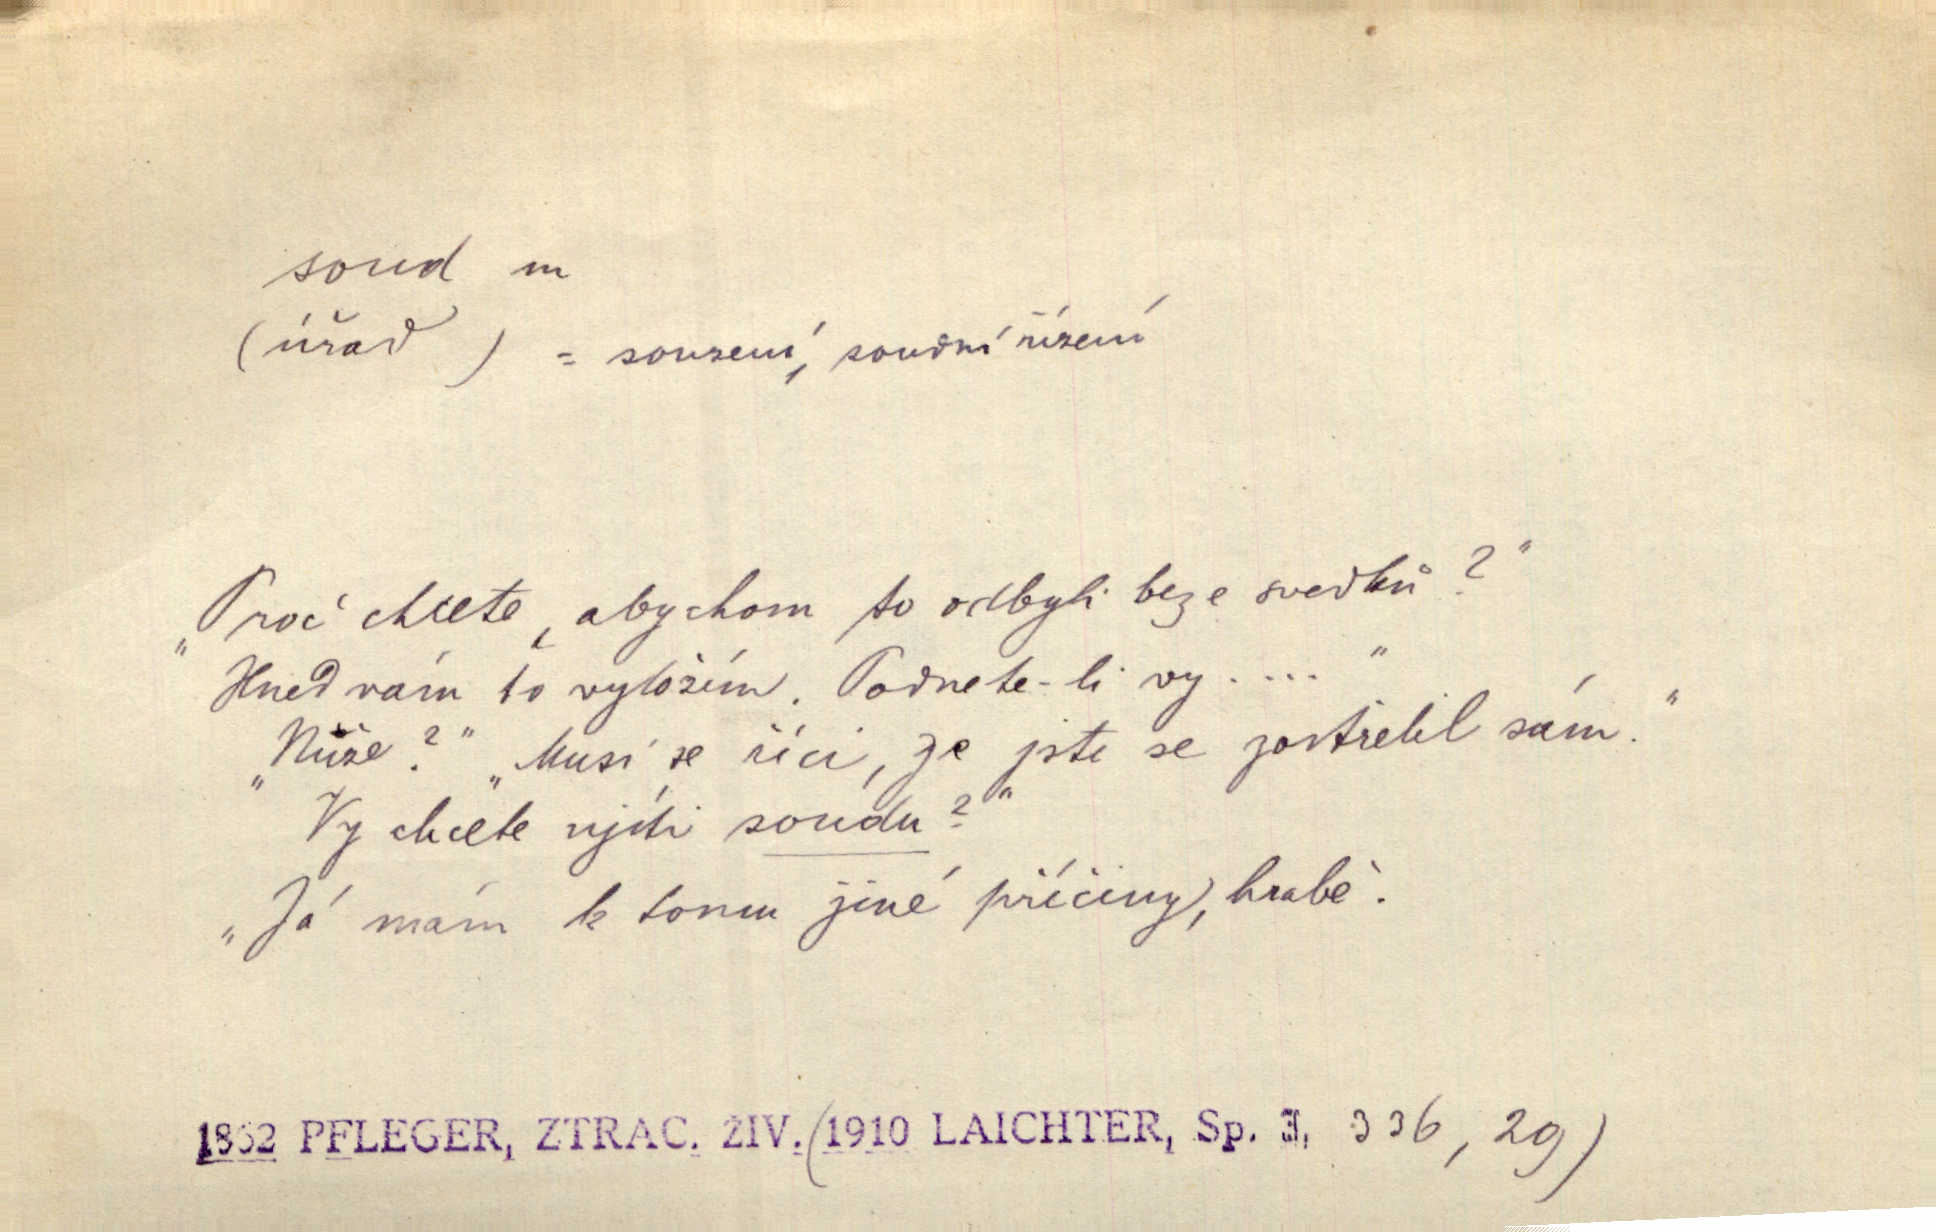 soud m
(úřad) = souzení, soudní řízení
„Proč chcete, abychom to odbyli beze svědků?"
Hned vám to vyložím. Podnete-li vy ....."
„Nuže?" „Musí se říci, že jste se zastřelil sám."
Vy chcete ujíti soudu?"
„Já mám k tomu jiné příčiny, hrabě.
1862 PFLEGER, ZTRAC. ŽIV. (1910 LAICHTER, Sp. 3, 336, 29)